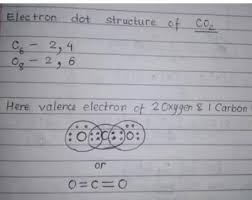 Electron dot structure of CO₂
C₆ - 2, 4
O₈ - 2, 6
Here valence electron of 2 Oxygen & 1 Carbon
O C O
or
O=C=O